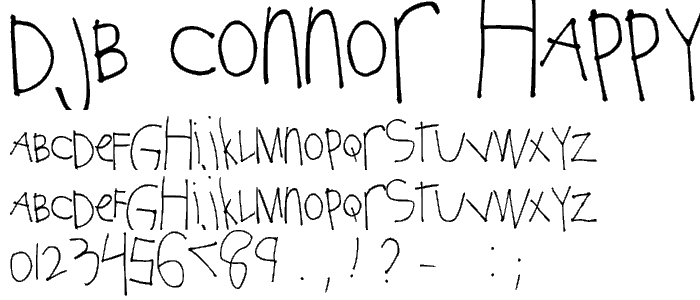 DJB Connor Happy
ABCDeFGHijkLMnOPQrSTUVWXYZ
ABCDeFGHijkLMnOPQrSTUVWXYZ
0123456789 . , ! ? - : ;